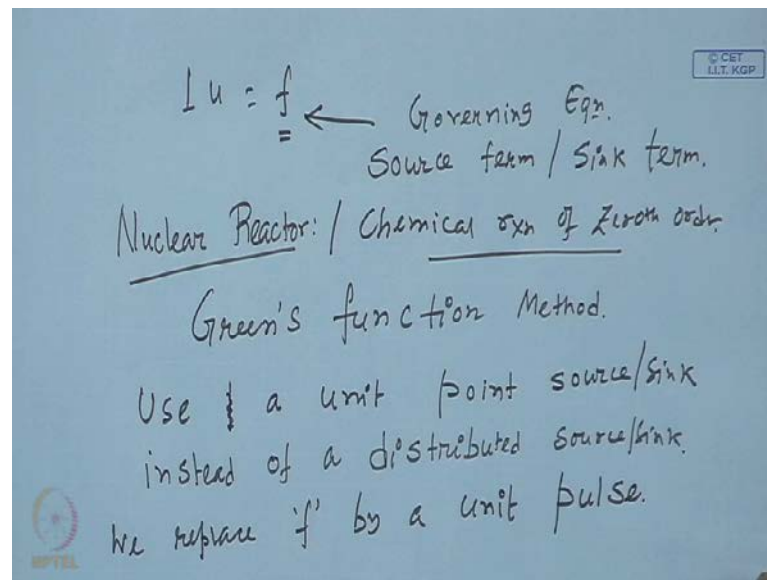 © CET
I.I.T. KGP
L u = f
Governing Eqn.
Source term / Sink term.
Nuclear Reactor: / Chemical rxn of Zeroth order.
Green's function Method.
Use a unit point source/sink
instead of a distributed source/sink.
We replace 'f' by a unit pulse.
NPTEL